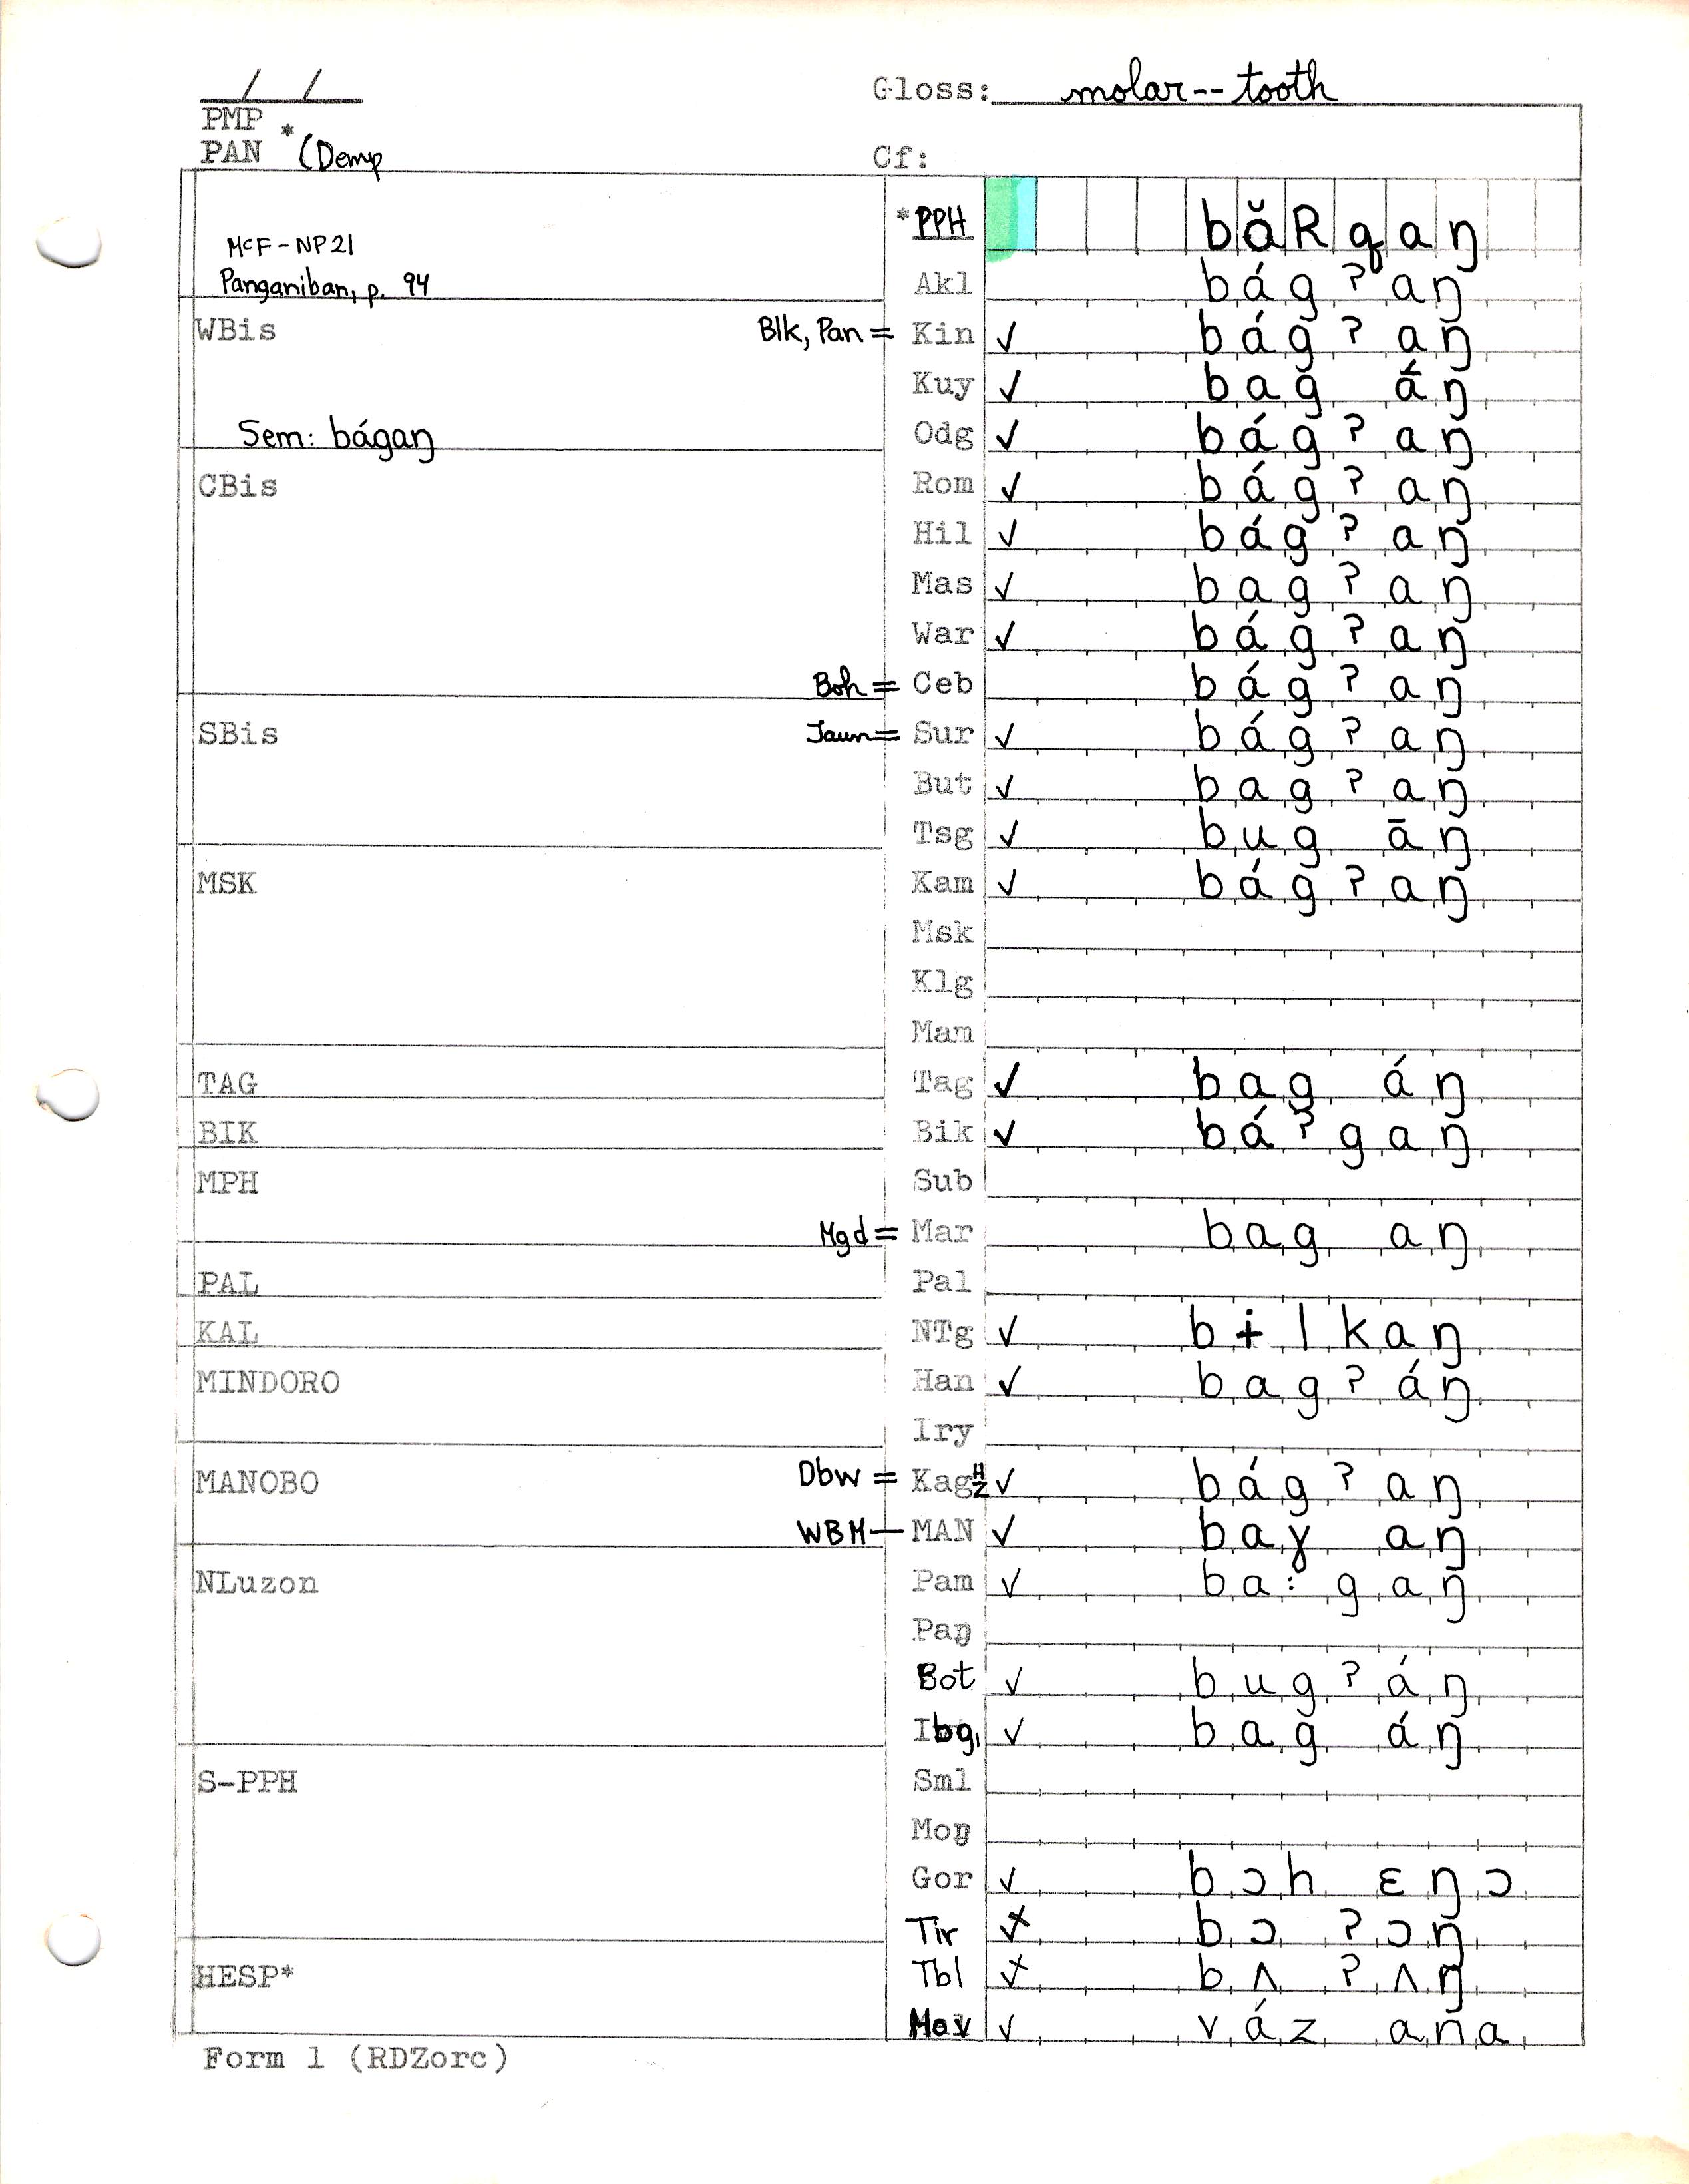 / /
Gloss: molar--tooth
PMP
PAN * (Demp
Cf:
McF-NP21
Panganiban, p. 94
*PPH băRqaŋ
Akl bágʔaŋ
WBis Blk, Pan = Kin ✓ bágʔaŋ
Kuy ✓ bagáŋ
Sem: bágaŋ
Odg ✓ bágʔaŋ
CBis Rom ✓ bágʔaŋ
Hil ✓ bágʔaŋ
Mas ✓ bagʔaŋ
War ✓ bágʔaŋ
Boh = Ceb bágʔaŋ
SBis Jaun = Sur ✓ bágʔaŋ
But ✓ bagʔaŋ
Tsg ✓ bugāŋ
MSK Kam ✓ bágʔaŋ
Msk
Klg
Mam
TAG Tag ✓ bagáŋ
BIK Bik ✓ báʔgaŋ
MPH Sub
Mgd = Mar bagaŋ
PAL Pal
KAL NTg ✓ bɨlkaŋ
MINDORO Han ✓ bagʔáŋ
Iry
MANOBO Dbw = Kag H Z ✓ bágʔaŋ
WBM — MAN ✓ baɣaŋ
NLuzon Pam ✓ ba:gaŋ
Paŋ
Bot ✓ bugʔáŋ
Ibg, ✓ bagáŋ
S-PPH Sml
Moŋ
Gor ✓ bɔhɛŋɔ
Tir bɔʔɔŋ
HESP* Tbl bʌʔʌŋ
✓ vázaŋa
Form 1 (RDZorc)